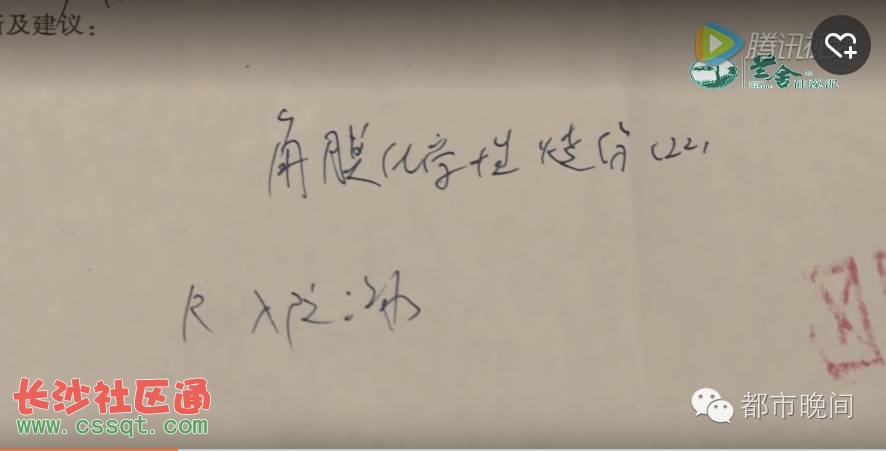 析及建议：
腾讯视
兰舍
硅藻泥
角膜化学性烧伤(22)
R 入院治
长沙社区通
www.cssqt.com
都市晚间